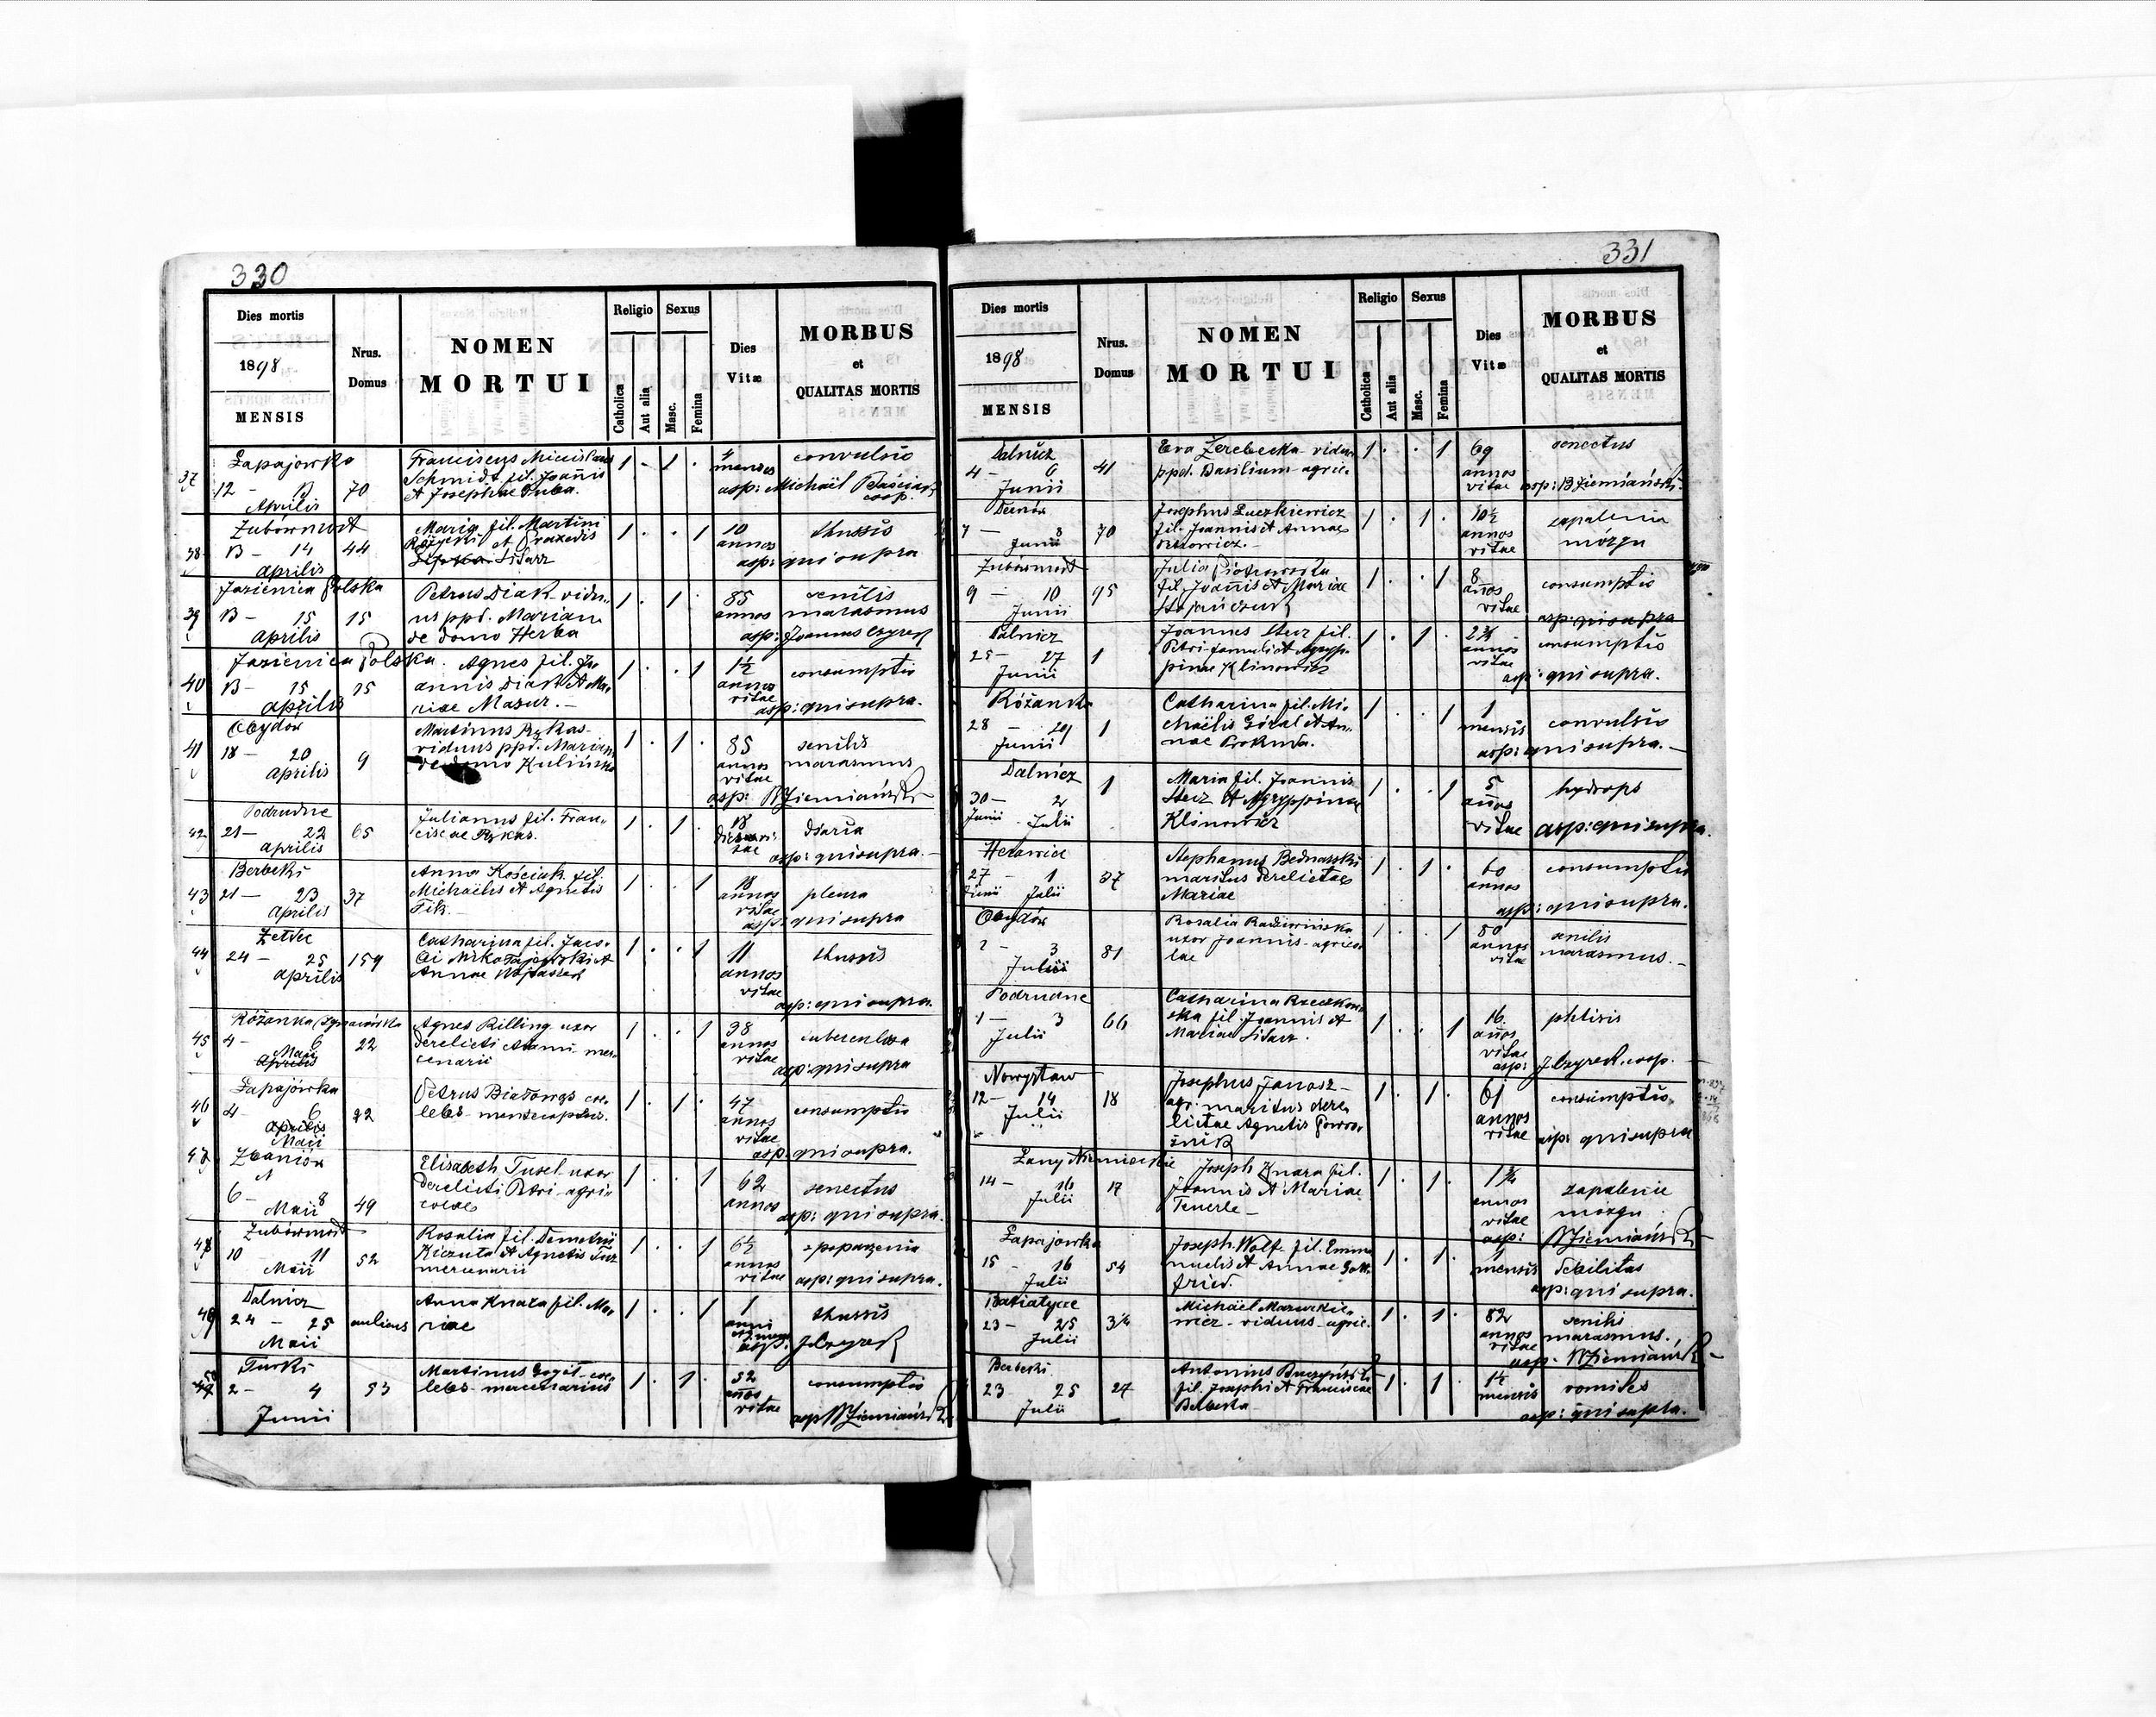 330
Dies mortis
1898
MENSIS
Nrus.
Domus
NOMEN
MORTUI
Religio
Catholica
Aut alia
Sexus
Masc.
Femina
Dies
Vitæ
MORBUS
et
QUALITAS MORTIS
37
Łapajówka
12 - 13
Aprilis
70
Franciscus
Schmidt fil. Joannis
et Josephae
1 . 1 .
4
menses
convulsio
asp: Michaël
coop.
38
Zubówmost
13 - 14
aprilis
44
Maria fil. Martini
et Praxedis
Sitarz
1 . . 1
10
annos
thussis
asp: qui supra
39
Jazienica Polska
13 - 15
aprilis
15
Petrus Diak vidu-
us ppd. Mariam
de domo Herba
1 . 1 .
85
annos
senilis
marasmus
asp: Joannes Czyrek
40
Jazienica Polska.
13 - 15
aprilis
15
Agnes fil. Jo-
annis Diak et Ma-
riae Mazur. -
1 . . 1
1½
annos
vitae
consumptio
asp: qui supra.
41
Obydów
18 - 20
aprilis
9
Martinus Rykas
viduus ppd. Mariam
de domo Kulińska
1 . 1 .
85
annos
vitae
senilis
marasmus
asp: W Ziemiański
42
Podrudne
21 - 22
aprilis
65
Julianus fil. Fran-
ciscae Rykas.
1 . 1 .
18
dies vi-
tae
diaria
asp: qui supra. -
43
Berbeki
21 - 23
aprilis
37
Anna Kościuk fil.
Michaëlis et Agnetis
Fik. -
1 . . 1
18
annos
vitae
pleura
asp: qui supra
44
Żeldec
24 - 25
aprilis
159
Catharina fil. Jaco-
bi Mikołajewski et
Annae
1 . . 1
11
annos
vitae
thussis
asp: qui supra.
45
Różanka
4 - 6
Maii
aprilis
22
Agnes Rilling uxor
derelicti Adami mer-
cenarii
1 . . 1
38
annos
vitae
tuberculosa
asp: qui supra
46
Łapajówka
4 - 6
aprilis
Maii
22
Petrus Białowąs coe-
lebs - mentecaptus.
1 . 1 .
47
annos
vitae
consumptio
asp. qui supra.
47
6 - 8
Maii
49
Elisabeth Tusel uxor
derelicti Petri - agri-
colae
1 . . 1
62
annos
senectus
asp: qui supra.
48
Zubówmost
10 - 11
Maii
52
Rosalia fil. Demetrii
Kiczuła et Agnetis
mercenarii
1 . . 1
6½
annos
vitae
z poparzenia
asp: qui supra.
49
Dalnicz
24 - 25
Maii
aulicus
Anna Knara fil. Ma-
riae
1 . . 1
1
anni
thussis
asp. J Czyrek
50
Turki
2 - 4
Junii
53
Martinus Gogit - coe-
lebs - mercenarius
1 . 1 .
52
años
vitae
consumptio
asp W Ziemiański
331
Dies mortis
1898
MENSIS
Nrus.
Domus
NOMEN
MORTUI
Religio
Catholica
Aut alia
Sexus
Masc.
Femina
Dies
Vitæ
MORBUS
et
QUALITAS MORTIS
Dalnicz
4 - 6
Junii
41
Eva Żerebecka vidua
ppd. Basilium agric.
1 . . 1
69
annos
vitae
senectus
asp: W Ziemiański.
7 - 8
Junii
70
Josephus Łuczkiewicz
fil. Joannis et Annae
1 . 1 .
10½
annos
vitae
zapalenie
mózgu
Zubówmost
9 - 10
Junii
95
Julia Piotrowska
fil. Joannis et Mariae
1 . . 1
8
años
vitae
consumptio
asp: qui supra
Dalnicz
25 - 27
Junii
1
Joannes Sterz fil.
Petri famuli et Agryp-
pinae Klinowicz
1 . 1 .
2¾
annos
vitae
consumptio
asp: qui supra.
Różanka
28 - 29
Junii
1
Catharina fil. Mi-
chaëlis Góral et An-
nae Prokuda.
1 . . 1
1
mensis
convulsio
asp: qui supra. -
Dalnicz
30 - 2
Junii - Julii
1
Maria fil. Joannis
Sterz et Agryppinae
Klinowicz
1 . . 1
5
años
vitae
hydrops
asp: qui supra.
27 - 1
Junii Julii
37
Stephanus Bednarski
maritus derelictae
Mariae
1 . 1 .
60
annos
consumptio
asp: qui supra.
Obydów
2 - 3
Julii
81
Rosalia Radziwińska
uxor Joannis - agrico-
lae
1 . . 1
80
annos
vitae
senilis
marasmus. -
Podrudne
1 - 3
Julii
66
Catharina Rzeczkow-
ska fil. Joannis et
Mariae Sitarz.
1 . . 1
16.
años
vitae
phtisis
asp: J Czyrek. coop.
Nowystaw
12 - 14
Julii
18
Josephus Janosz -
agr. maritus dere-
lictae Agnetis Powro-
źnik
1 . 1 .
61
annos
vitae
consumptio
asp: qui supra
Łany Niemieckie
14 - 16
Julii
17
Joseph Knara fil.
Joannis et Mariae
Feuerle -
1 . 1 .
annos
vitae
zapalenie
mózgu
asp: W Ziemiański
Łapajówka
15 - 16
Julii
54
Joseph. Wolf fil. Emma-
nuelis et Annae Gott-
fried.
1 . 1 .
1
mensis
debilitas
asp: qui supra.
Batiatycze
23 - 25
Julii
Michaël Mazurkie-
wicz - viduus - agric.
1 . 1 .
82
annos
vitae
senilis
marasmus.
asp. W Ziemiański -
Berbeki
23 25
Julii
27
Antonius
fil. Josephi et Franciscae
Berbeka
1 . 1 .
1½
mensis
vomites
asp: qui supra.